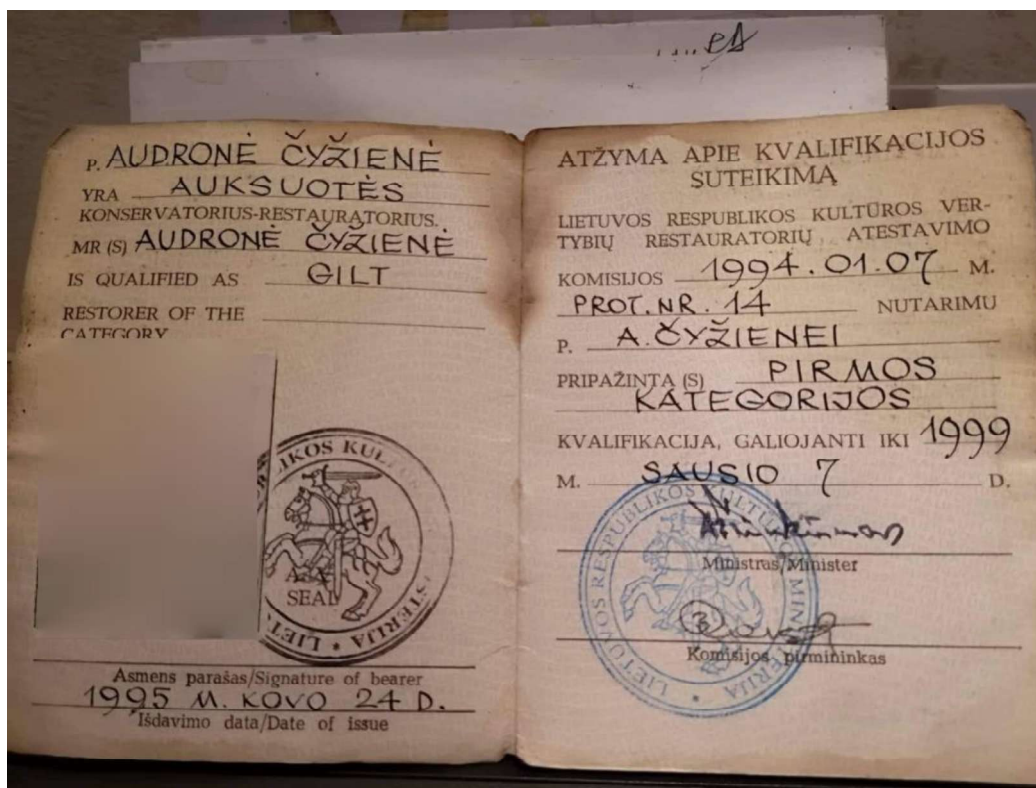 P. AUDRONĖ ČYŽIENĖ
YRA AUKSUOTĖS
KONSERVATORIUS-RESTAURATORIUS.
MR (S) AUDRONĖ ČYŽIENĖ
IS QUALIFIED AS GILT
RESTORER OF THE
CATEGORY
IKOS KUL
A.V.
SEAL
STERIJA * LIET
Asmens parašas/Signature of bearer
1995 M. KOVO 24 D.
Išdavimo data/Date of issue
ATŽYMA APIE KVALIFIKACIJOS
SUTEIKIMĄ
LIETUVOS RESPUBLIKOS KULTŪROS VER-
TYBIŲ RESTAURATORIŲ ATESTAVIMO
KOMISIJOS 1994.01.07 M.
PROT. NR. 14 NUTARIMU
P. A. ČYŽIENEI
PRIPAŽINTA (S) PIRMOS
KATEGORIJOS
KVALIFIKACIJA, GALIOJANTI IKI 1999
M. SAUSIO 7 D.
LIETUVOS RESPUBLIKOS KULTŪROS MINISTERIJA
Ministras/Minister
Komisijos pirmininkas